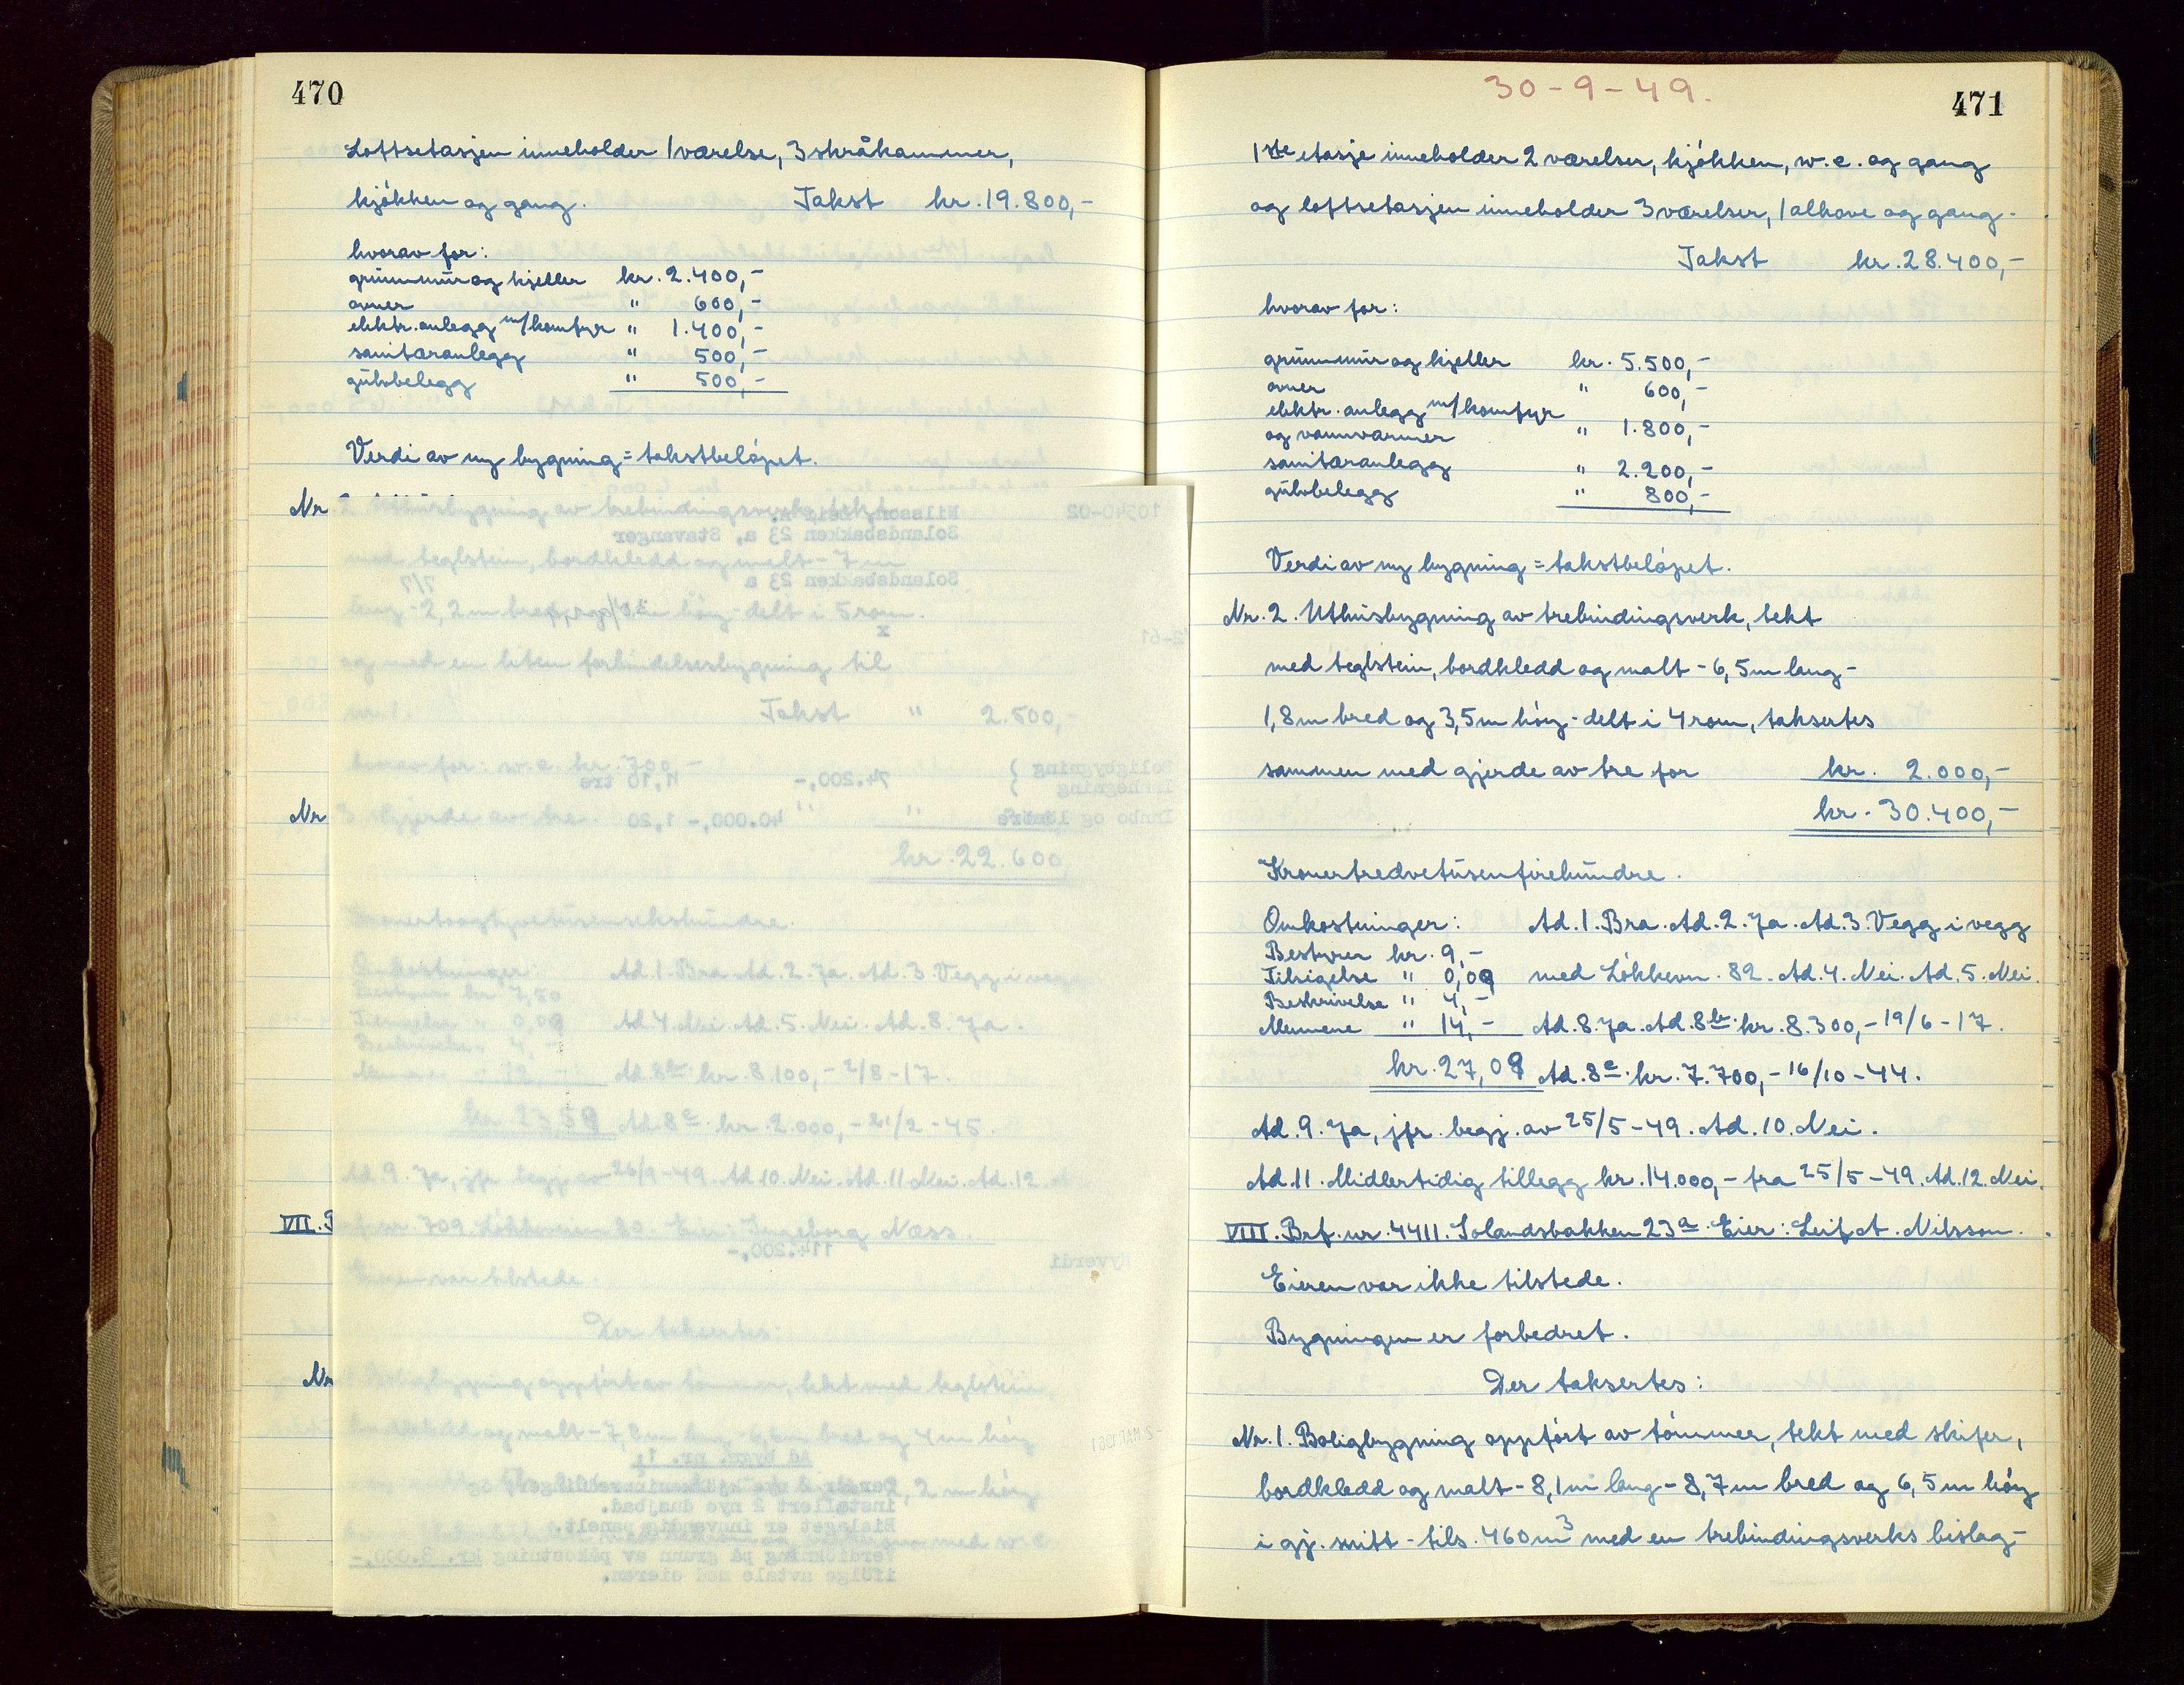 470
Loftsetasjen inneholder 1 værelse, 3 skråkammer,
kjökken og gang. Takst kr. 19.800,-
hvorav for:
grunnmur og kjeller kr. 2.400,-
ovner " 600,-
elektr. anlegg m/komfyr " 1.400,-
sanitæranlegg " 500,-
gulvbelegg " 500,-
Verdi av ny bygning = takstbelöpet.
Nr 2 Uthusbygning av trebindingsverk, tekt
med teglstein, bordkledd og malt - 7 m
lang - 2,2 m bred, og höy - delt i 5 rom.
og med en liten forbindelsesbygning til
nr. 1. Takst " 2.500,-
hvorav for: w.c. kr. 700,-
Nr 3. Gjerde av tre. "
kr. 22.600,
Kronertoogtyvetusensekshundre.
Omkostninger: Ad. 1. Bra. Ad. 2. Ja. Ad. 3. Vegg i vegg
Bestyrer kr. 7,50
Tilsigelse " 0,09 Ad 4. Nei. Ad. 5. Nei. Ad. 8. Ja.
Beskrivelse " 4,-
Mennene " 12,- Ad 8b. kr. 8.100,- 2/8-17.
kr. 23,59 Ad 8c. kr. 2.000,- 21/2-45.
Ad. 9. Ja, jfr. begj. av 26/9-49. Ad 10. Nei. Ad. 11 Nei. Ad. 12.
VII. Brf. nr. 709. Lökkeveien 80. Eier: Ingeborg Næss.
Eieren var tilstede.
Der taksertes:
Nr Boligbygning oppfört av tömmer, tekt med teglstein,
bordkledd og malt - 7,8 m lang - 6,6 m bred og 4 m höy
10940-02
Solandsbakken 23 a, Stavanger
Solandsbakken 23 a 7/7
x
Boligbygning } 74.200,- 1,10 tre
Innhegning
Innbo og lösöre 40.000,- 1,20
Nyverdi 114.200,-
Ad bygn. nr. 1:
installert 2 nye dusjbad.
Bislaget er innvendig panelt.
Verdiökning på grunn av påkostning kr. 3.000,-
ifölge avtale med eieren.
30-9-49.
471
1ste etasje inneholder 2 værelser, kjökken, w.c. og gang
og loftsetasjen inneholder 3 værelser, 1 alkove og gang.
Takst kr. 28.400,-
hvorav for:
grunnmur og kjeller kr. 5.500,-
ovner " 600,-
elektr. anlegg m/komfyr
og vannvarmer " 1.800,-
sanitæranlegg " 2.200,-
gulvbelegg " 800,-
Verdi av ny bygning = takstbelöpet.
Nr. 2. Uthusbygning av trebindingsverk, tekt
med teglstein, bordkledd og malt - 6,5 m lang -
1,8 m bred og 3,5 m höy - delt i 4 rom, taksertes
sammen med gjerde av tre for kr. 2.000,-
kr. 30.400,-
Kronertredvetusenfirehundre.
Omkostninger: Ad. 1. Bra. Ad. 2. Ja. Ad. 3. Vegg i vegg
Bestyrer kr. 9,-
Tilsigelse " 0,09 med Lökkevn. 82. Ad. 4. Nei. Ad. 5. Nei.
Beskrivelse " 4,-
Mennene " 14,- Ad. 8. Ja. Ad. 8b. kr. 8.300,- 19/6-17.
kr. 27,09 Ad. 8c. kr. 7.700,- 16/10-44.
Ad. 9. Ja, jfr. begj. av 25/5-49. Ad. 10. Nei.
Ad. 11. Midlertidig tillegg kr. 14.000,- fra 25/5-49. Ad. 12. Nei.
VIII. Brf. nr. 4411. Solandsbakken 23a. Eier: Leif A. Nilsson.
Eieren var ikke tilstede.
Bygningen er forbedret.
Der taksertes:
Nr. 1. Boligbygning oppfört av tömmer, tekt med skifer,
bordkledd og malt - 8,1 m lang - 8,7 m bred og 6,5 m höy
i gj. snitt - tils. 460 m3 med en trebindingsverks bislag -